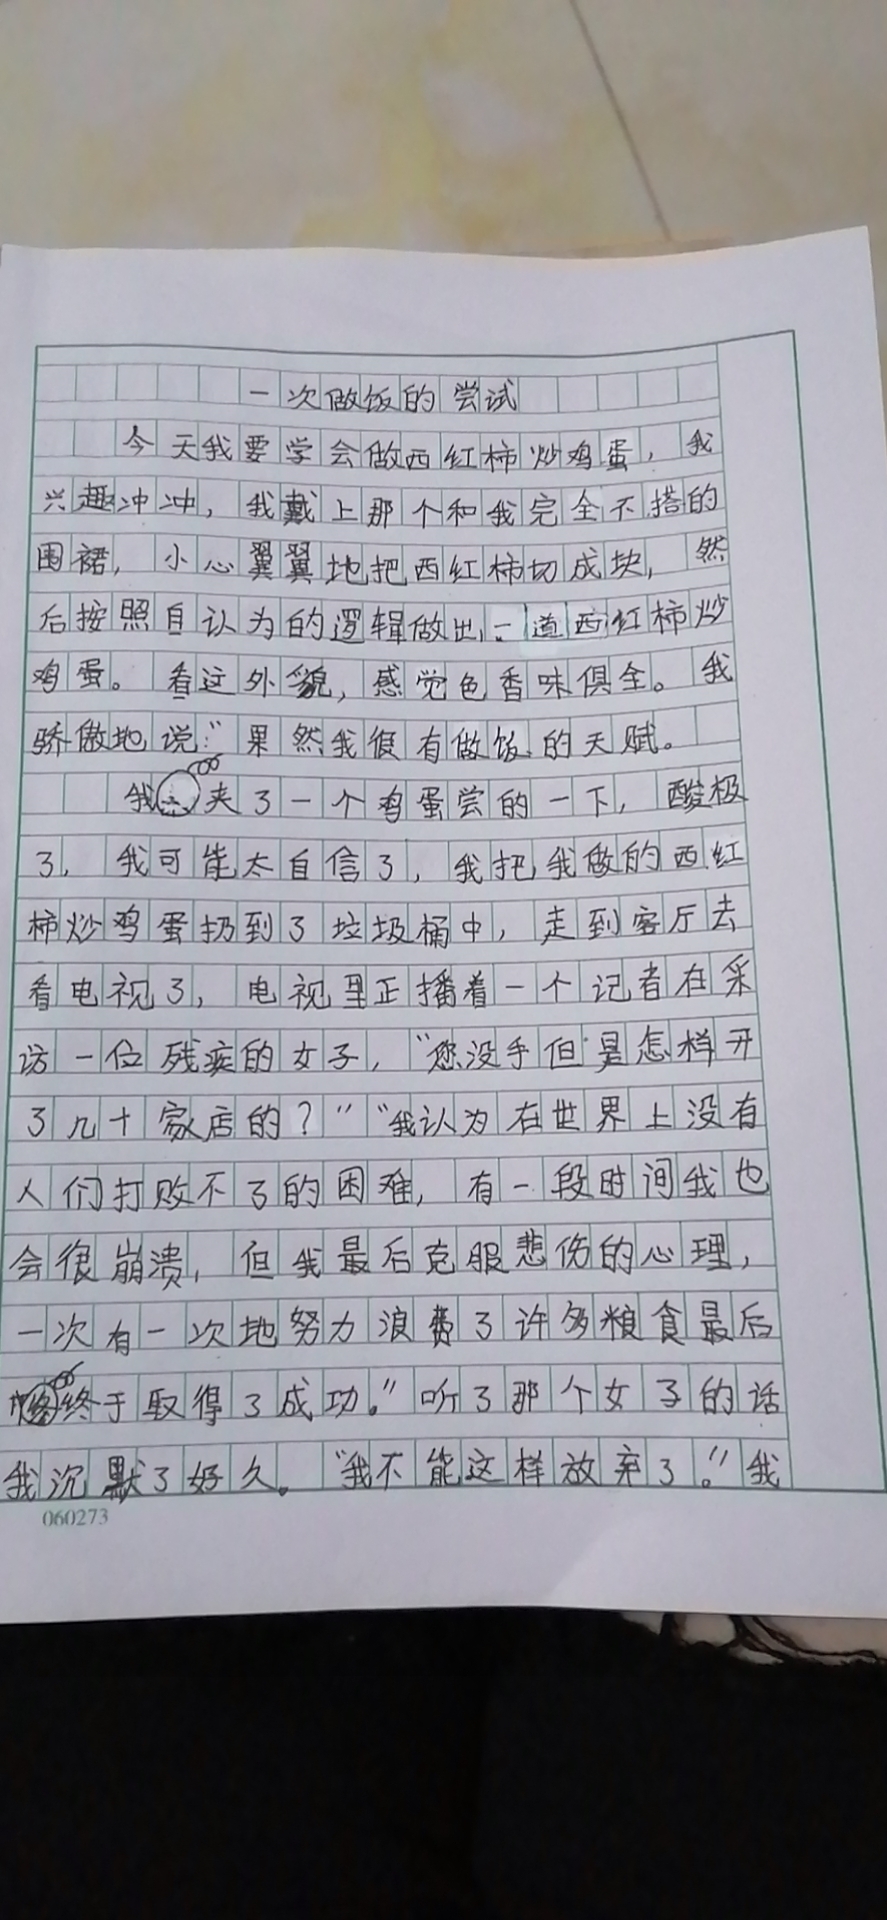 一次做饭的尝试
今天我要学会做西红柿炒鸡蛋，我
兴趣冲冲，我戴上那个和我完全不搭的
围裙，小心翼翼地把西红柿切成块，然
后按照自认为的逻辑做出，一道西红柿炒
鸡蛋。看这外貌，感觉色香味俱全。我
骄傲地说：“果然我很有做饭的天赋。
我夹了一个鸡蛋尝的一下，酸极
了，我可能太自信了，我把我做的西红
柿炒鸡蛋扔到了垃圾桶中，走到客厅去
看电视了，电视里正播着一个记者在采
访一位残疾的女子，“您没手但是怎样开
了几十家店的？”“我认为在世界上没有
人们打败不了的困难，有一段时间我也
会很崩溃，但我最后克服悲伤的心理，
一次有一次地努力浪费了许多粮食最后
终于取得了成功。”听了那个女子的话
我沉默了好久。“我不能这样放弃了。”我
060273